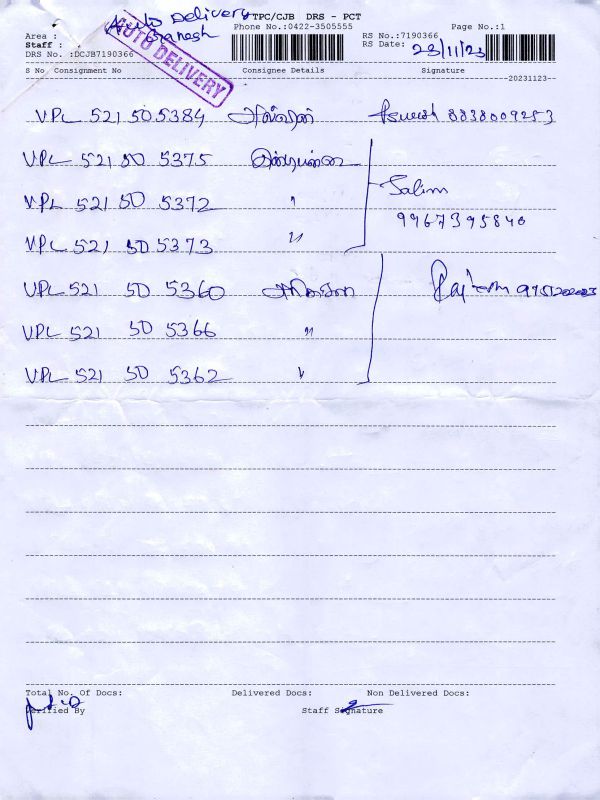 Auto Delivery
Ganesh
TPC/CJB DRS - PCT
Phone No.:0422-3505555
Page No.:1
Area :
Staff :
DRS No. :DCJB7190366
AUTO DELIVERY
RS No.:7190366
RS Date: 23/11/23
S No Consignment No Consignee Details Signature
20231123
VPL 521 50 5384 8838009253
VPL 521 50 5375
VPL 521 50 5372 "
Salim
9967395840
VPL 521 50 5373 "
VPL 521 50 5360
VPL 521 50 5366 "
VPL 521 50 5362 "
Total No. Of Docs: Delivered Docs: Non Delivered Docs:
Verified By Staff Signature